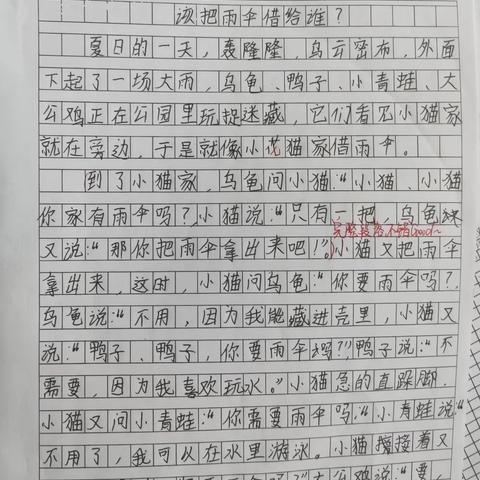 该把雨伞借给谁？
夏日的一天，轰隆隆，乌云密布，外面
下起了一场大雨，乌龟、鸭子、小青蛙、大
公鸡正在公园里玩捉迷藏，它们看见小猫家
就在旁边，于是就像小花猫家借雨伞。
到了小猫家，乌龟问小猫：“小猫、小猫
你家有雨伞吗？，小猫说：“只有一把，乌龟
又说：“那你把雨伞拿出来吧！？小猫又把雨伞
拿出来，这时，小猫问乌龟：“你要雨伞吗？，
乌龟说：“不用，因为我能藏进壳里，小猫又
说：“鸭子、鸭子，你要雨伞吗？”，鸭子说：“不
需要，因为我喜欢玩水。”小猫急的直跺脚.
小猫又问小青蛙：“你需要雨伞吗，“小青蛙说：“
不用了，我可以在水里游泳。小猫接着又
大公鸡说：“要，